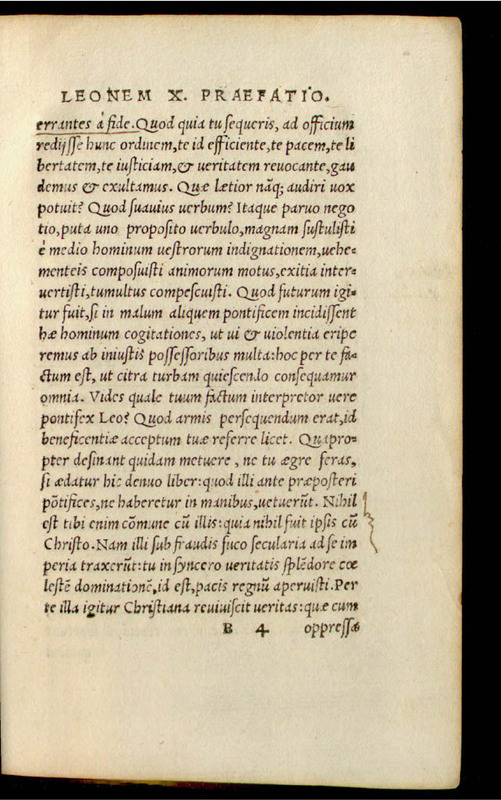 LEONEM X. PRAEFATIO.
errantes á fide. Quod quia tu sequeris, ad officium
redijsse hunc ordinem, te id efficiente, te pacem, te li
bertatem, te iusticiam, & veritatem reuocante, gau
demus & exultamus. Quæ lætior nāq; audiri uox
potuit? Quod suauius uerbum? Itaque paruo nego
tio, puta uno proposito uerbulo, magnam sustulisti
é medio hominum uestrorum indignationem, uehe-
menteis composuisti animorum motus, exitia inter-
uertisti, tumultus compescuisti. Quod futurum igi-
tur fuit, si in malum aliquem pontificem incidissent
hæ hominum cogitationes, ut ui & uiolentia eripe
remus ab iniustis possessoribus multa: hoc per te fa-
ctum est, ut citra turbam quiescendo consequamur
omnia. Vides quale tuum factum interpretor uere
pontifex Leo? Quod armis persequendum erat, id
beneficentiæ acceptum tuæ referre licet. Quapro-
pter desinant quidam metuere, ne tu ægre feras,
si ædatur hic denuo liber: quod illi ante præposteri
pōtifices, ne haberetur in manibus, uetuerūt. Nihil
est tibi enim cōmune cū illis: quia nihil fuit ipsis cū
Christo. Nam illi sub fraudis fuco secularia ad se im
peria traxerūt: tu in syncero ueritatis splēdore cœ
lestē dominationē, id est, pacis regnū aperuisti. Per
te illa igitur Christiana reuiuiscit ueritas: quæ cum
B 4 oppressa